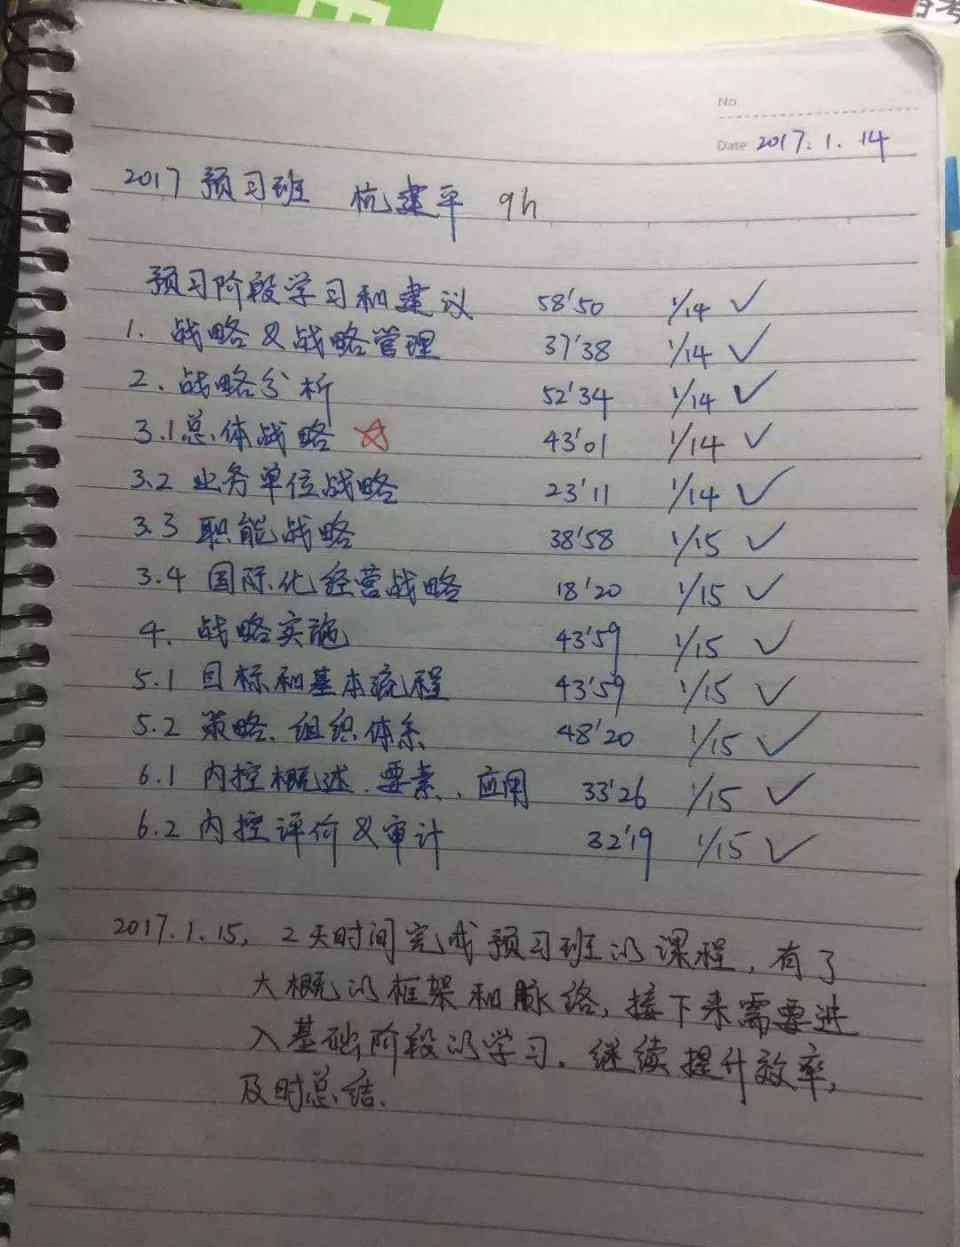 No
Date 2017.1.14
2017 预习班 杭建平 9h
预习阶段学习和建议 58'50 1/14 ✓
1. 战略&战略管理 37'38 1/14 ✓
2. 战略分析 52'34 1/14 ✓
3.1总体战略 ☆ 43'01 1/14 ✓
3.2 业务单位战略 23'11 1/14 ✓
3.3 职能战略 38'58 1/15 ✓
3.4 国际化经营战略 18'20 1/15 ✓
4. 战略实施 43'59 1/15 ✓
5.1 目标和基本流程 43'59 1/15 ✓
5.2 策略、组织体系 48'20 1/15 ✓
6.1 内控概述、要素、应用 33'26 1/15 ✓
6.2 内控评价&审计 32'19 1/15 ✓
2017.1.15, 2天时间完成预习班的课程,有了
大概的框架和脉络,接下来需要进
入基础阶段的学习.继续提升效率,
及时总结.